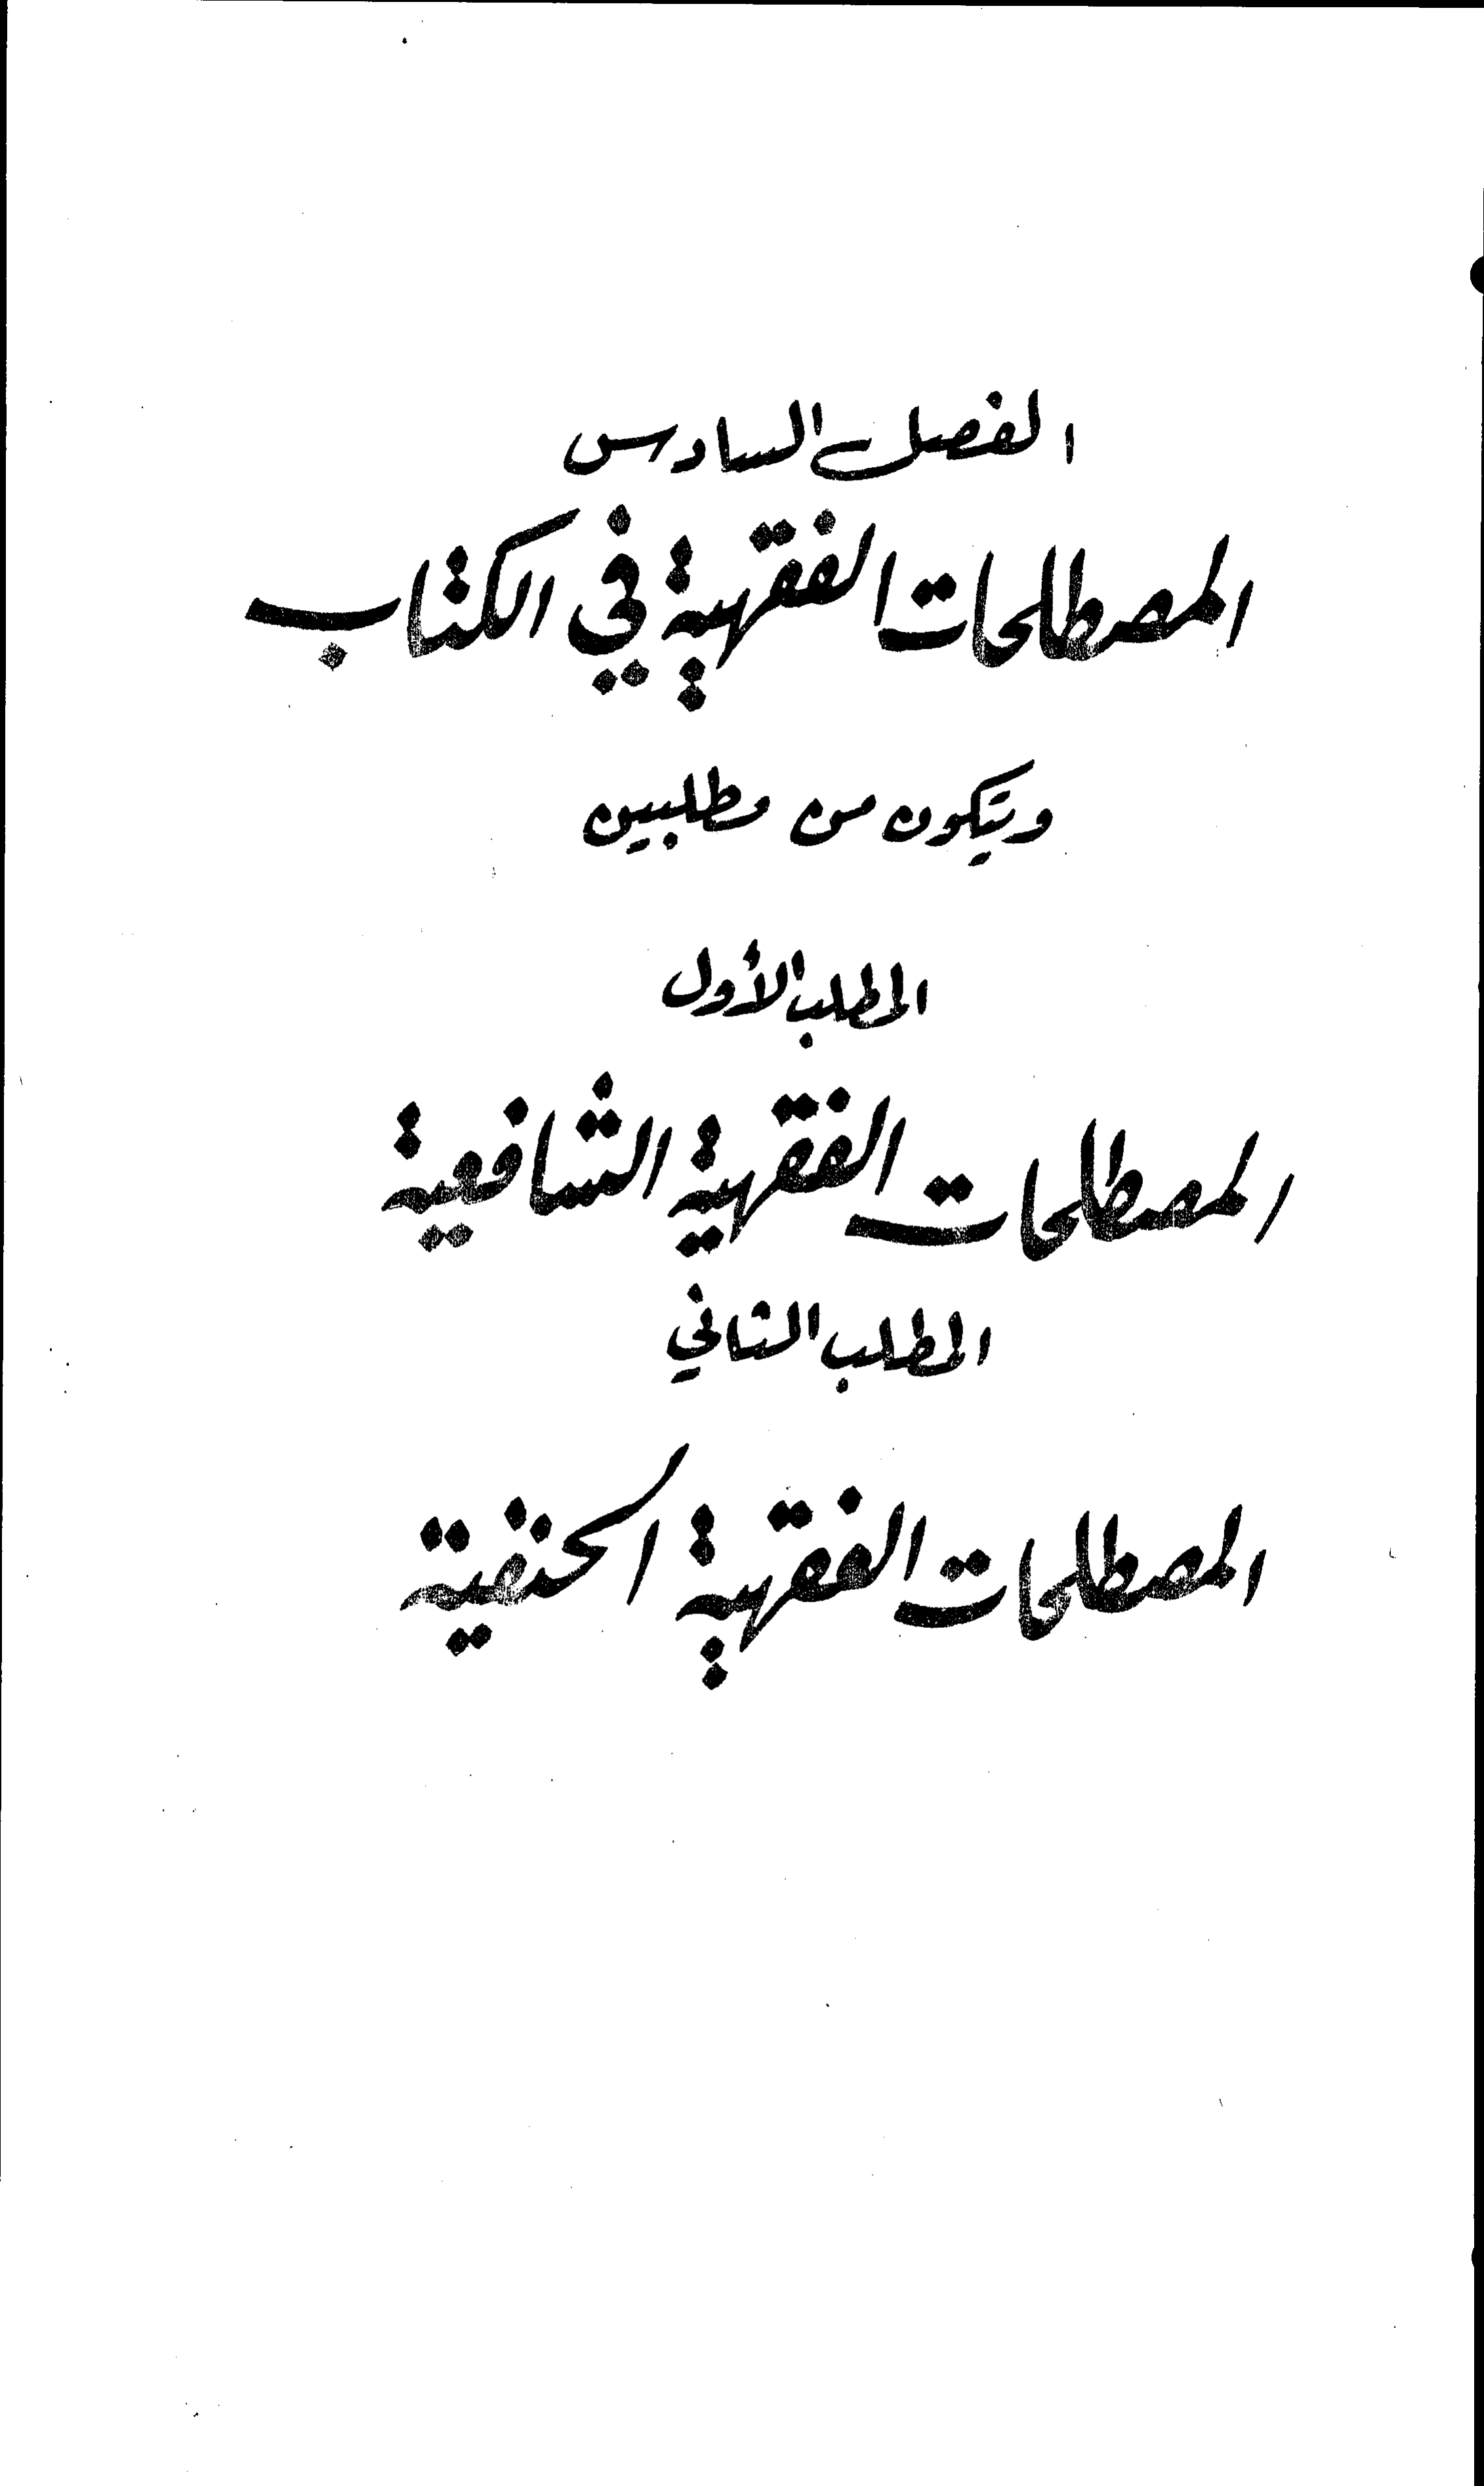 الفصل السادس
المصطلحات الفقهية في الكتاب
ويتكون من مطلبين
المطلب الأول
المصطلحات الفقهية الشافعية
المطلب الثاني
المصطلحات الفقهية الحنفية